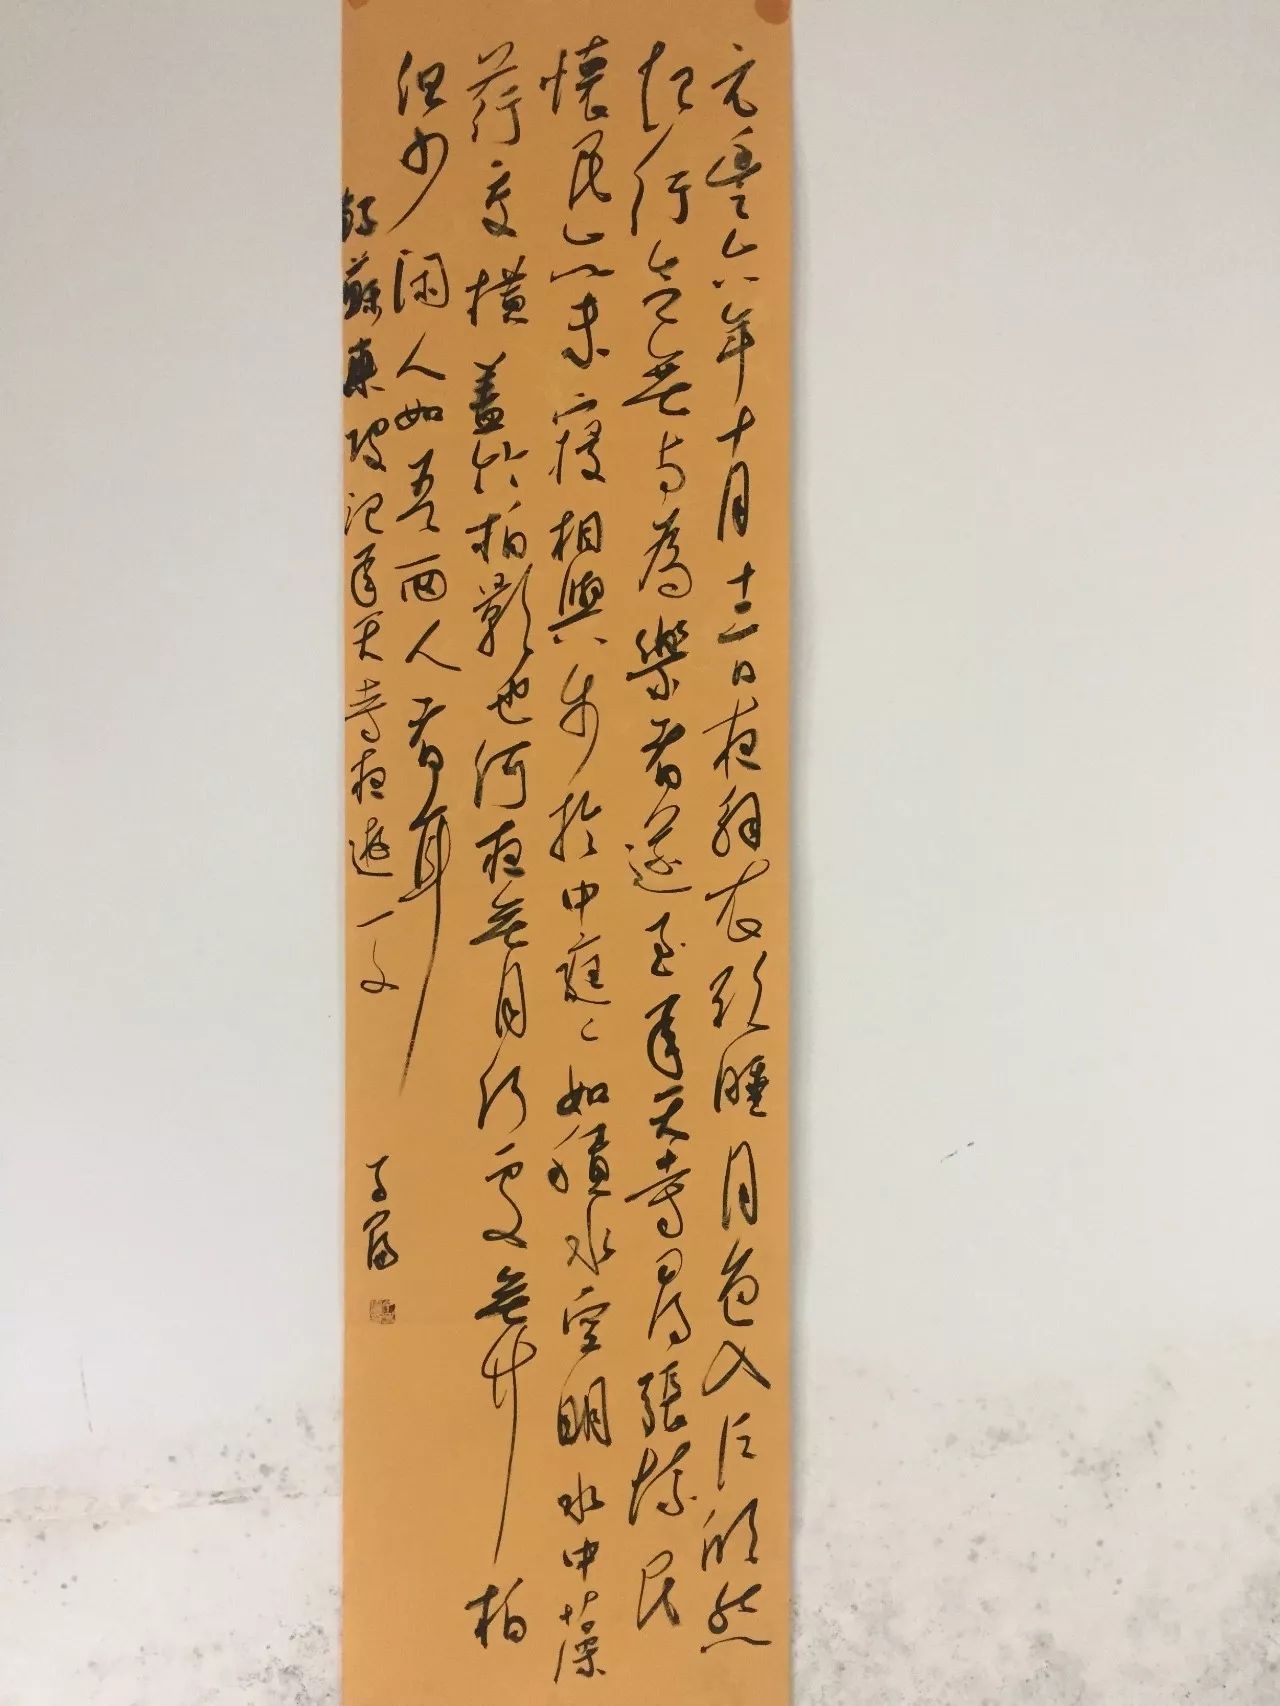 元豐六年十月十二日夜解衣欲睡月色入户欣然
起行念無与為樂者遂至承天寺尋張懷民
懷民亦未寢相與步於中庭々如積水空明水中藻
荇交横蓋竹柏影也何夜無月何處無竹柏
但少闲人如吾兩人者耳
錄蘇東坡记承天寺夜遊一文